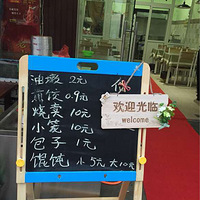 油墩 2元
煎饺 0.9元
烧卖 10元
小笼 10元
包子 1元
馄饨 小5元 大10元
欢迎光临
welcome